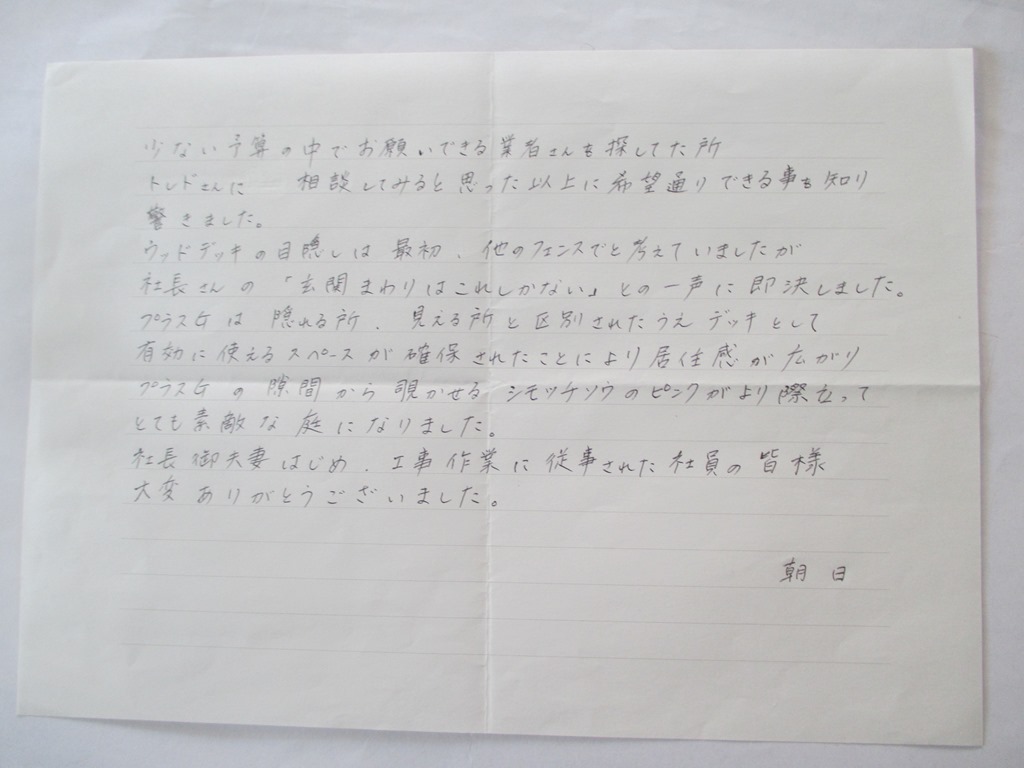 少ない予算の中でお願いできる業者さんを探してた所
トレドさんに 相談してみると思った以上に希望通りできる事を知り
驚きました。
ウッドデッキの目隠しは最初、他のフェンスでと考えていましたが
社長さんの「玄関まわりはこれしかない」との一声に即決しました。
プラスGは隠れる所、見える所と区別されたうえデッキとして
有効に使えるスペースが確保されたことにより居住感が広がり
プラスGの隙間から覗かせるシモツケソウのピンクがより際立って
とても素敵な庭になりました。
社長御夫妻はじめ、工事作業に従事された社員の皆様
大変ありがとうございました。
朝日